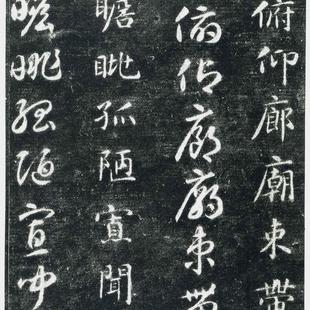 俯仰廊廟束帶
俯仰廊廟束帶
瞻眺孤陋寡聞
瞻眺孤陋寡聞